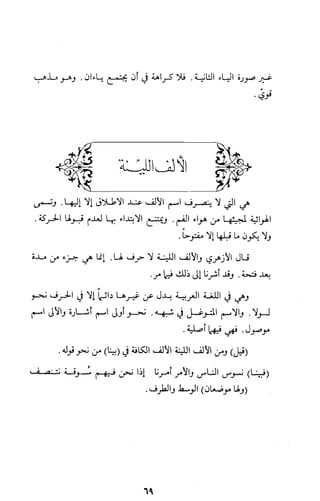 غير صورة الياء الثانية. فلا كراهة في أن يجتمع ياءان. وهو مذهب
قويّ.
الألف الليّنة
هي التي لا ينصرف اسم الألف عند الإطلاق إلا إليها. وتسمى
الهوائية لمجيئها من هواء الفم. ويمتنع الابتداء بها لعدم قبولها الحركة.
ولا يكون ما قبلها إلا مفتوحاً.
قال الأزهري والألف اللينة لا حرف لها. إنما هي جزء من مدة
بعد فتحة. وقد أشرنا إلى ذلك فيما مر.
وهي في اللغة العربية بدل عن غيرها دائماً إلا في الحرف نحو
لولا. والاسم الموغل في شبهه. نحو أولي إشارة والألى اسم
موصول. فهي فيهما أصلية.
(قيل) ومن الألف اللينة الألف الكافة في (بينا) من نحو قوله.
(فبينا) نسوس الناس والأمر أمرنا إذا نحن فيهم سُوقة نتنصف
(ولها موضعان) الوسط والطرف.
٦٩